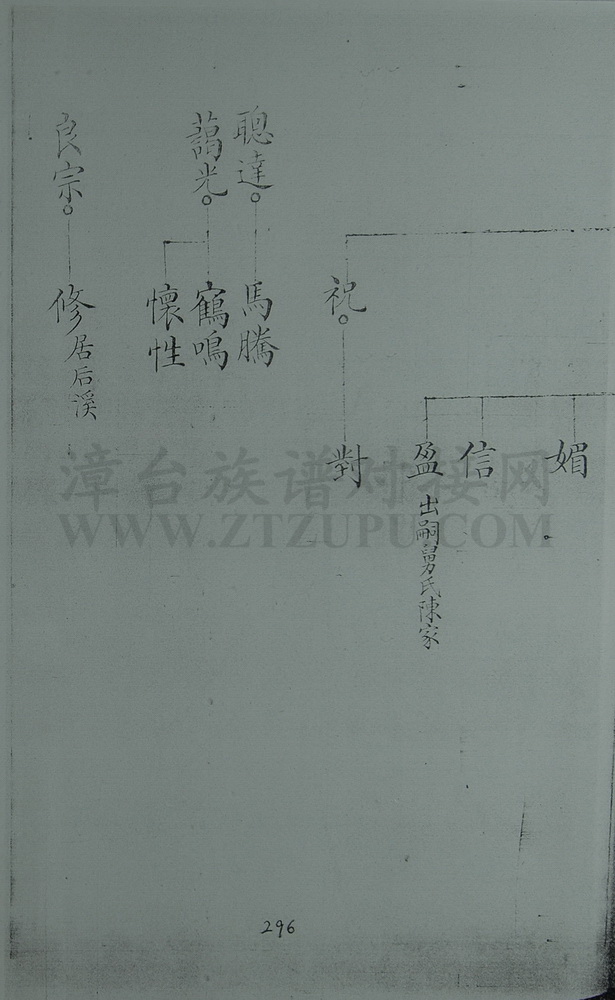 媚
信
盈 出嗣舅氏陳家
祝
對
聰達
馬騰
藹光
鶴鳴
懷性
良宗
修 居后溪
漳台族谱对接网
WWW.ZTZUPU.COM
296